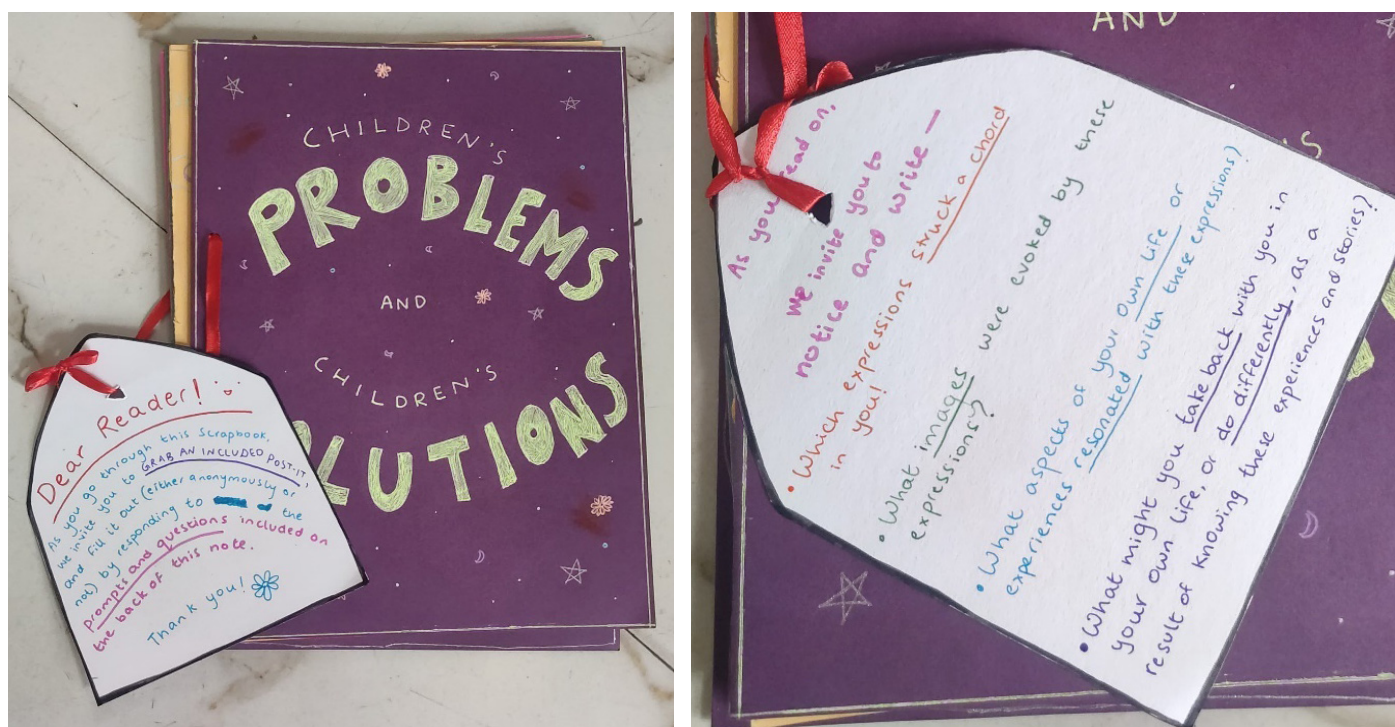 CHILDREN'S
PROBLEMS
AND
CHILDREN'S
OLUTIONS
Dear Reader!
As you go through this Scrapbook,
we invite you to GRAB AN INCLUDED POST-IT,
and fill it out (either anonymously or
not) by responding to the
prompts and questions included on
the back of this note.
Thank you!
AND
S
As you read on,
we invite you to
notice and write —
• Which expressions struck a chord
in you!
• What images were evoked by these
expressions?
• What aspects of your own life or
experiences resonated with these expressions?
• What might you take back with you in
your own life, or do differently, as a
result of knowing these experiences and stories?